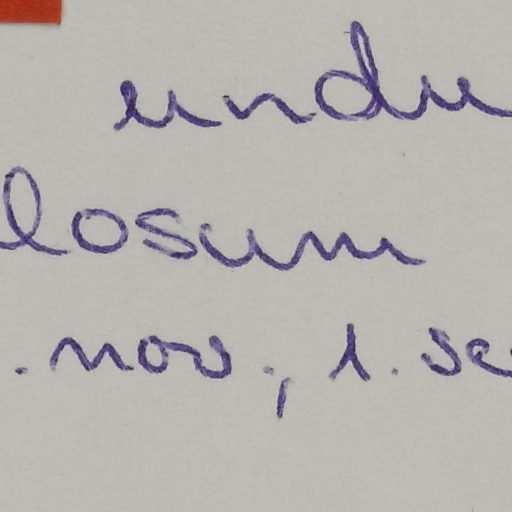 undu
losum
. nov., 1. se